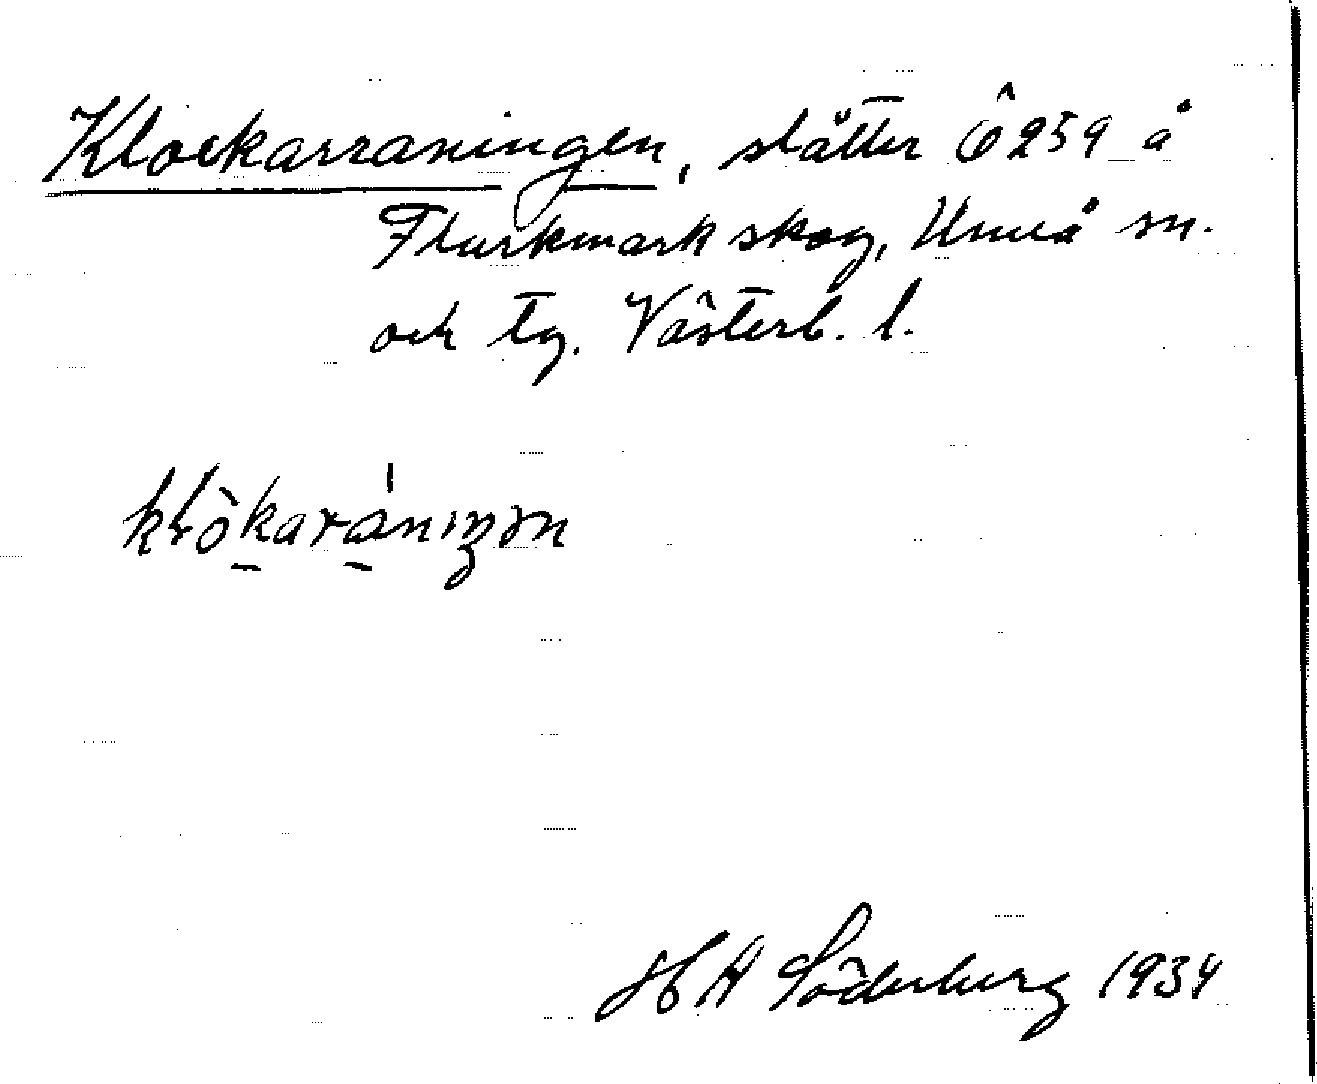 Klockarraningen, slåtter Ö 259 å
Flurkmark skog, Umeå sn.
och tg. Västerb. l.
H A Söderberg 1934